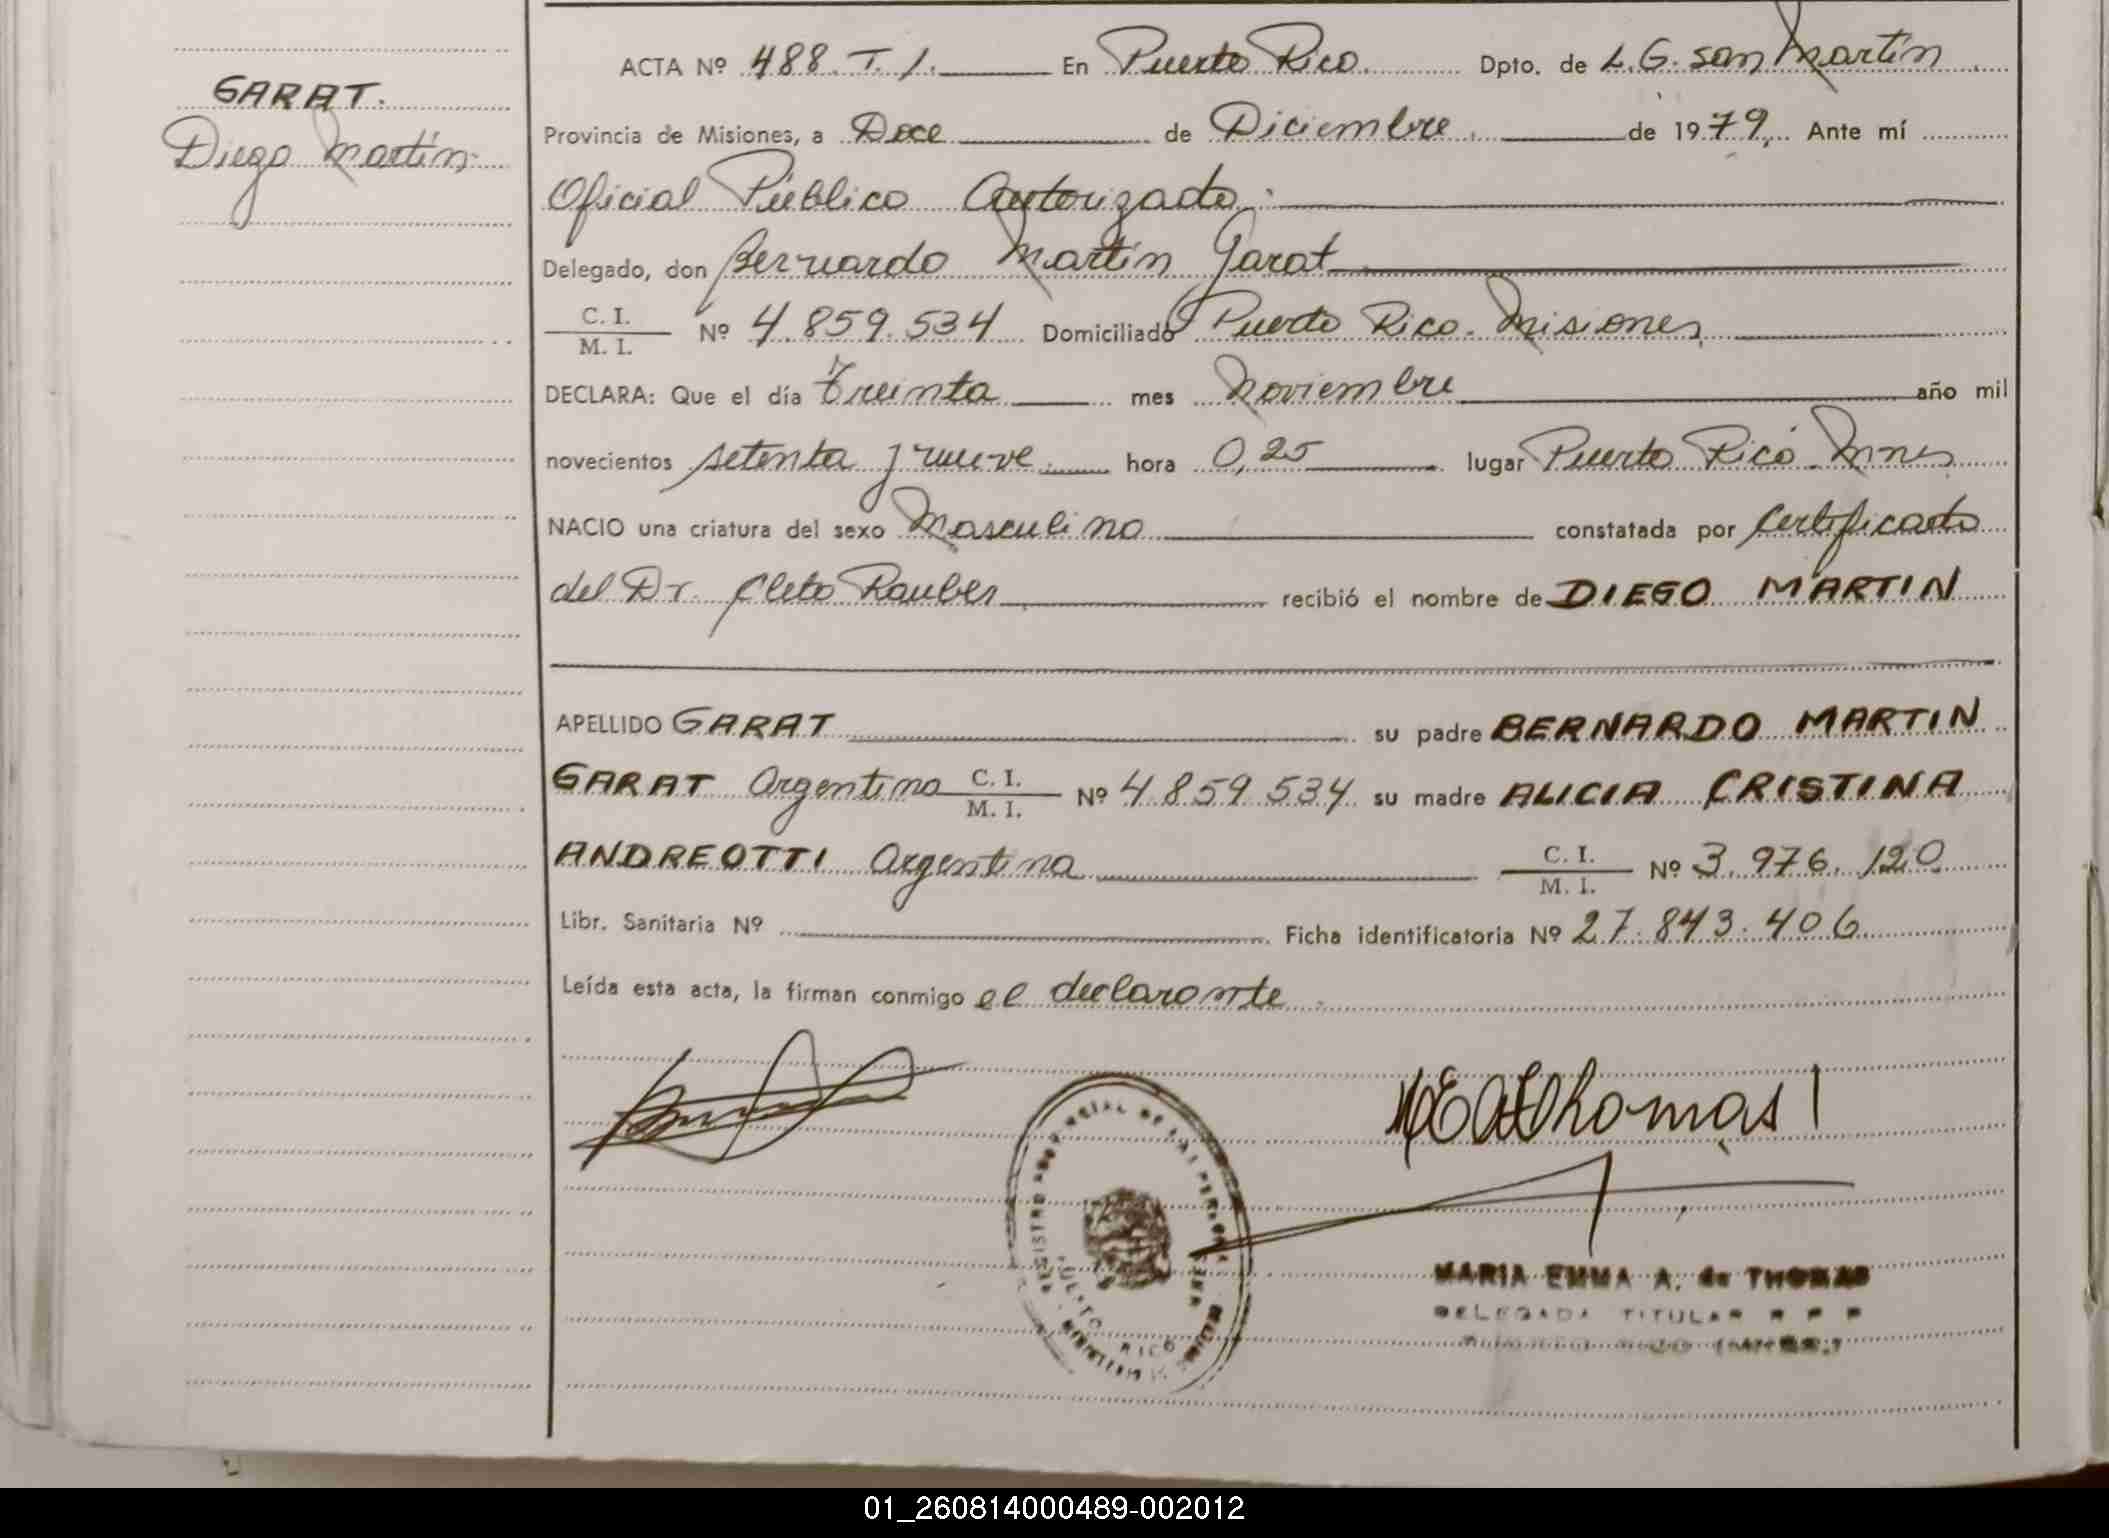 GARAT.
Diego Martín
ACTA Nº 488. T. 1. En Puerto Rico. Dpto. de L. G. San Martín
Provincia de Misiones, a Doce de Diciembre. de 1979, Ante mí
Oficial Público Autorizado:
Delegado, don Bernardo Martín Garat
C. I.
M. I. Nº 4.859.534 Domiciliado Puerto Rico. Misiones,
DECLARA: Que el día Treinta mes Noviembre año mil
novecientos setenta y nueve. hora 0,25 lugar Puerto Rico. Mnes
NACIO una criatura del sexo Masculino constatada por Certificado
del Dr. Cleto Rauber recibió el nombre de DIEGO MARTIN
APELLIDO GARAT su padre BERNARDO MARTIN
GARAT Argentino C. I.
M. I. Nº 4.859.534 su madre ALICIA CRISTINA
ANDREOTTI Argentina C. I.
M. I. Nº 3.976.120
Libr. Sanitaria Nº Ficha identificatoria Nº 27.843.406
Leída esta acta, la firman conmigo el declarante.
MEAThomas
REGISTRO PROVINCIAL DE LAS PERSONAS
PUERTO RICO
MISIONES
MARIA EMMA A. de THOMAS
DELEGADA TITULAR R P P
01_260814000489-002012